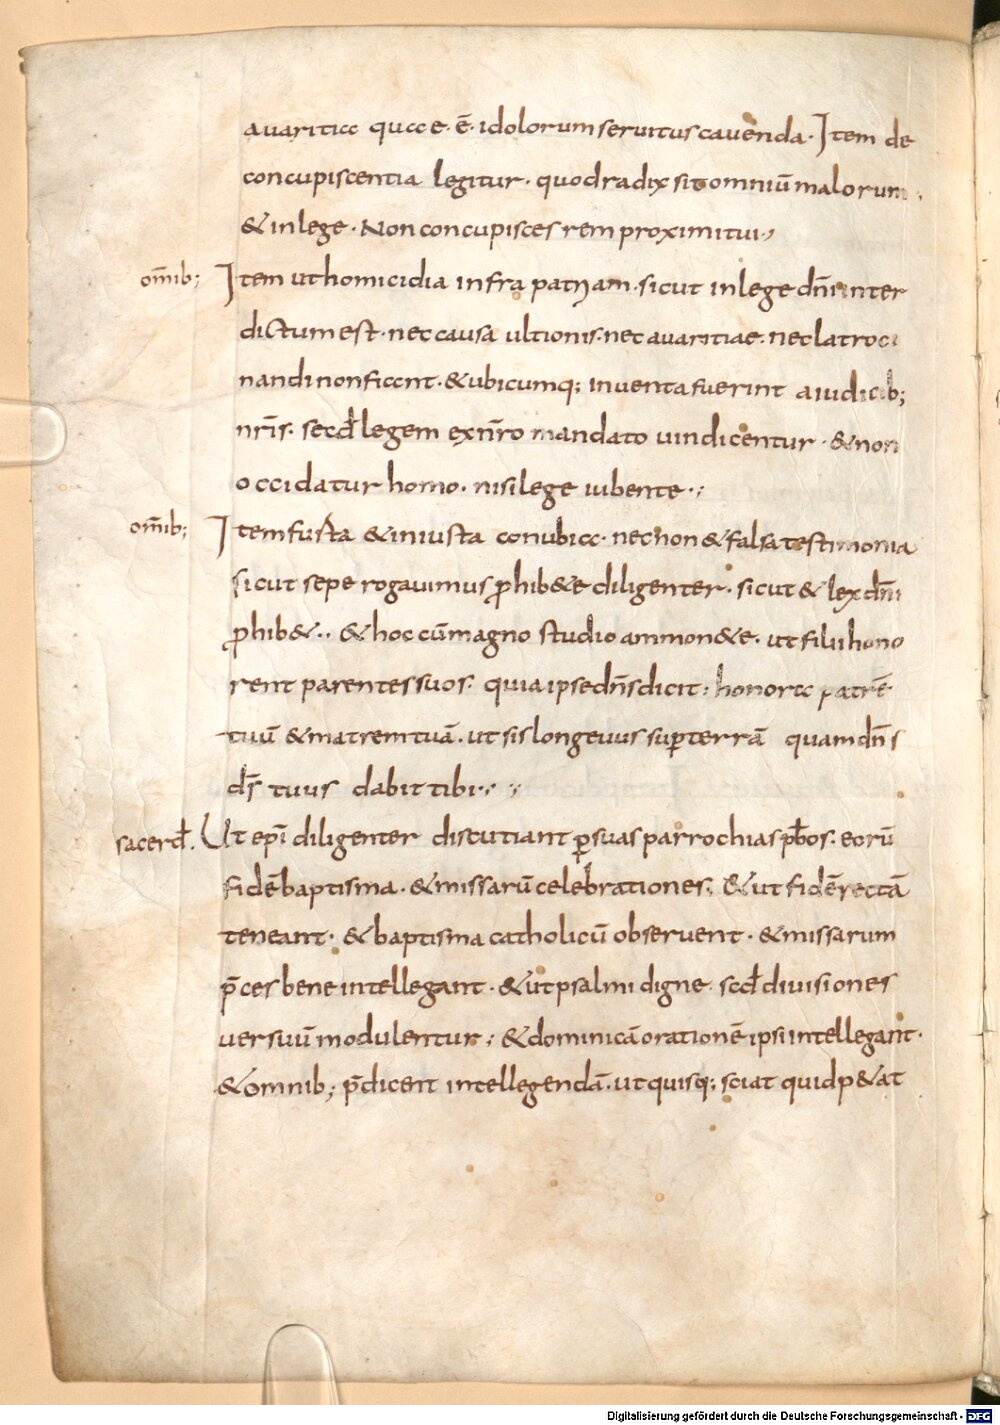 auaritia quae ē idolorum seruitus cauenda. Item de
concupiscentia legitur. quod radix sit omniū malorum.
& in lege. Non concupisces rem proximi tui.
om̄ib; Item ut homicidia infra patriam. sicut in lege dn̄i inter
dictum est. nec causa ultionis. nec auaritiae. nec latroci
nandi non ficent. & ubicumq; inuenta fuerint a iudicib;
nr̄is. secd̄ legem ex nr̄o mandato uindicentur. & non
occidatur homo. nisi lege iubente.
om̄ib; Item furta & iniusta conubia. necnon & falsa testimonia
sicut sepe rogauimus ꝓhib&e diligenter. sicut & lex dn̄i
ꝓhib&. & hoc cū magno studio ammon&e. ut filii hono
rent parentes suos. quia ipse dn̄s dicit: honora patrē
tuū & matrem tuā. ut sis longeuus suꝑ terrā quam dn̄s
ds̄ tuus dabit tibi.
sacerd̄. Ut epī diligenter discutiant ꝑ suas parrochias pb̄os. eorū
fidē baptisma. & missarū celebrationes. & ut fidē rectā
teneant. & baptisma catholicū obseruent. & missarum
p̄ces bene intellegant. & ut psalmi digne. sccd̄ diuisiones
versuū modulentur; & dominicā orationē ipsi intellegant.
& omnib; p̄dicent intellegendā. ut quisq; sciat quid p&at
Digitalisierung gefördert durch die Deutsche Forschungsgemeinschaft - DFG